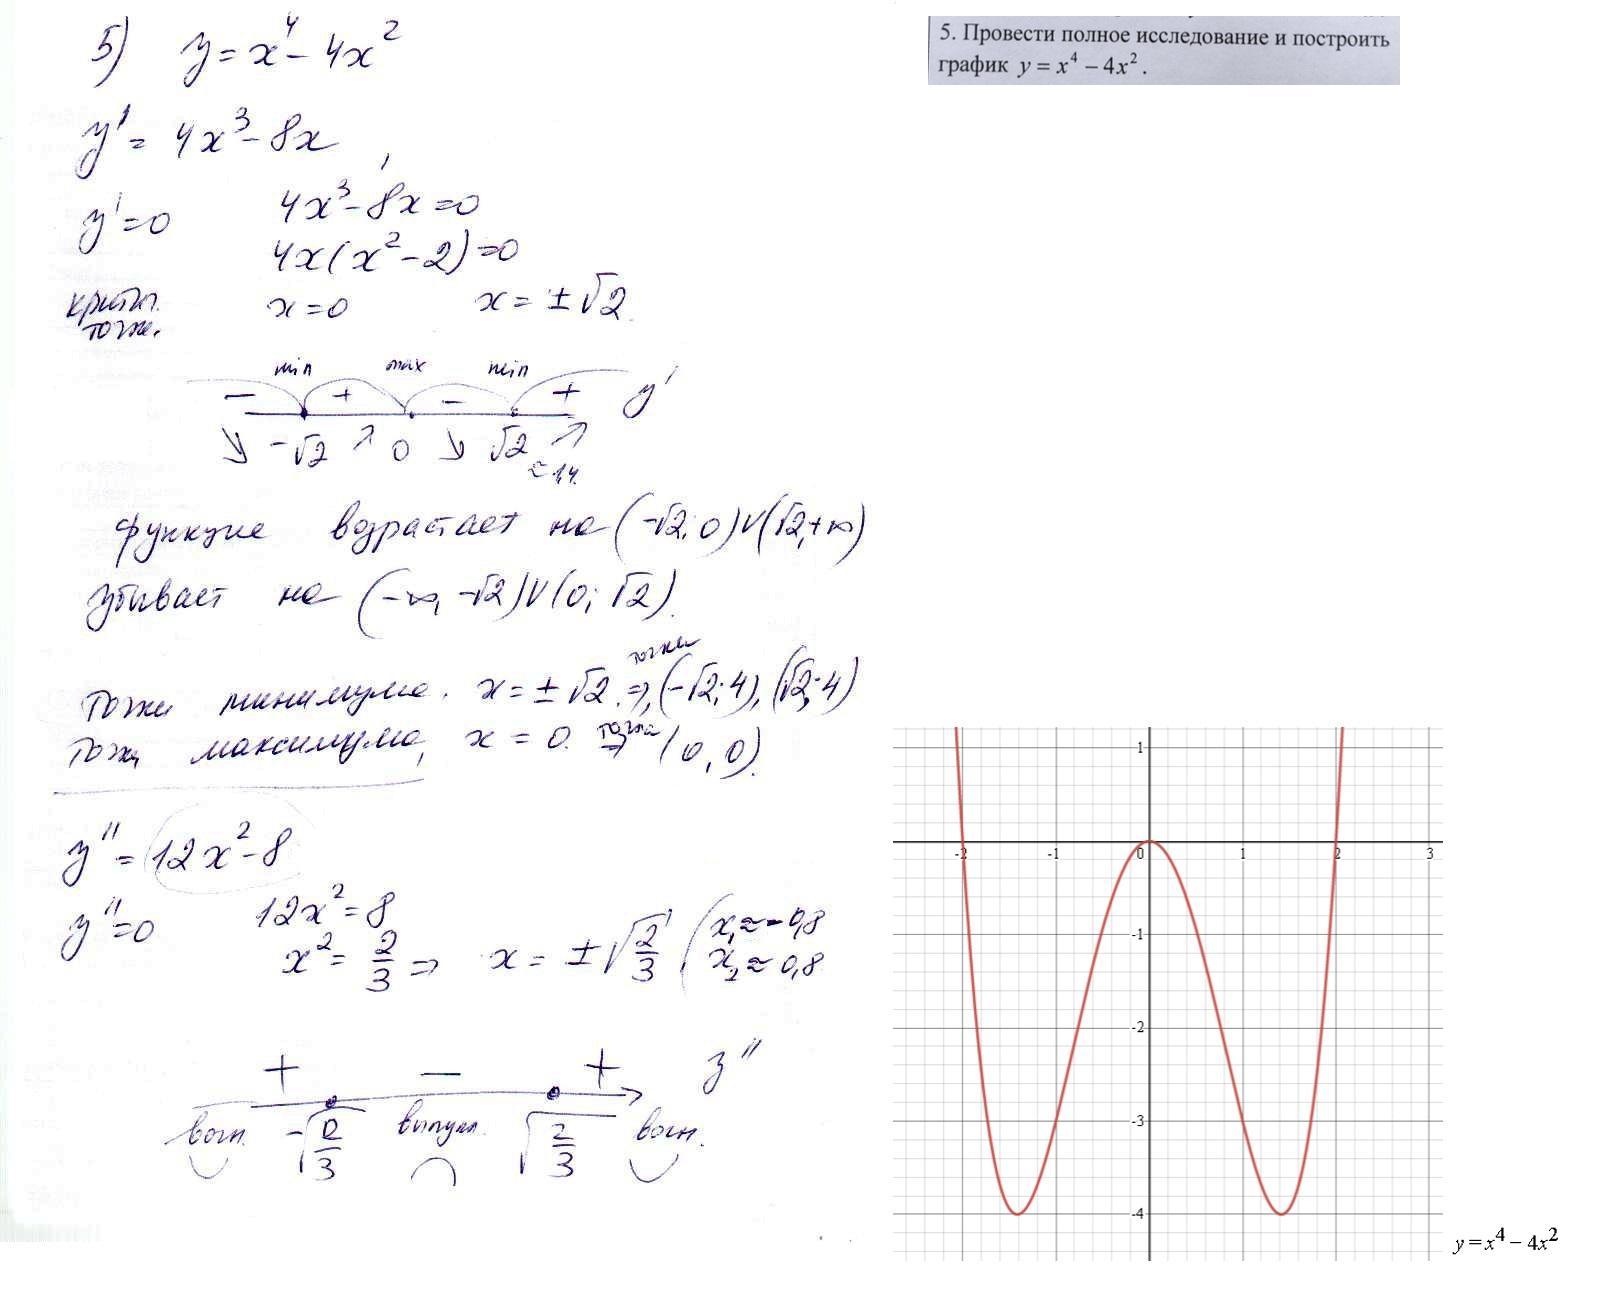 5) y = x⁴ - 4x²
y' = 4x³ - 8x
y' = 0 4x³ - 8x = 0
4x(x² - 2) = 0
критич. x = 0 x = ± √2.
точки.
min max min
- + - + y'
-√2 0 √2
≈ 1,4.
функция возрастает на (-√2; 0) ∪ (√2, +∞)
убывает на (-∞, -√2) ∪ (0; √2).
точки
точки минимума. x = ± √2. ⇒ (-√2; 4), (√2; 4)
точка
точки максимума, x = 0. ⇒ (0, 0).
y'' = 12x² - 8
y'' = 0 12x² = 8
x² = 2/3 ⇒ x = ± √2/3 ( x₁ ≈ -0,8
x₂ ≈ 0,8
+ - + y''
вогн. -√2/3 выпукл. √2/3 вогн.
5. Провести полное исследование и построить
график y = x⁴ − 4x².
1
-2 -1 0 1 2 3
-1
-2
-3
-4
y = x⁴ − 4x²